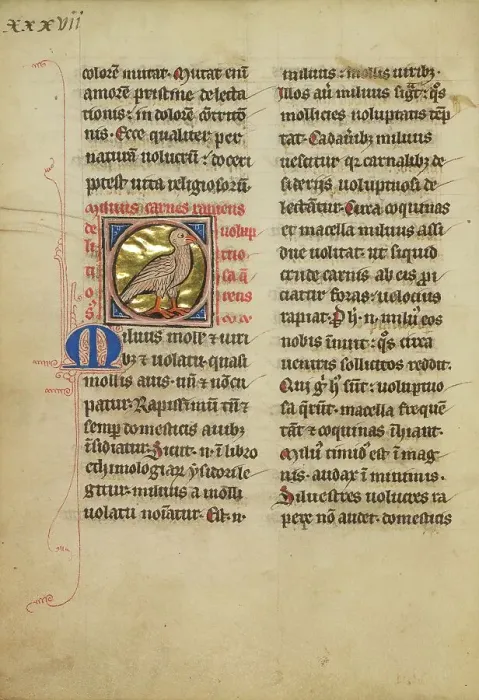 xxxvii
colorē mutat. Mutat eni
amorē pristine delecta
tionis: in dolorē ɔtritō
nis. Ecce qualiter per
naturā uolucrū: doceri
potest uita religiosorū.
Miluus carnes rapiens
Miluus mollis & uiri
bꝫ & uolatu quasi
mollis auis. nū & nōcu
patur. Rapacissimū tn̄ &
semp domesticis auibꝫ
īsidiatur. Sicut. n. ī libro
ethimologiaꝝ ysidori le
gitur. miluus a molli
uolatu noīatur. Est. n.
miluus: mollis uiribꝫ.
Illos aū miluus sigͭ: qͦs
mollicies uoluptatis tēp
tat. Cadauibꝫ miluus
uescitur qꝛ carnalibꝫ de
siderijs uoluptuosi de
lectātur. Circa coquinas
et macella miluus assi
due uolitat. ut siquid
crude carnis ab eis ꝓi
ciatur foras: uelocius
rapiat. P h. n. milū eos
nobis īnuit: qͦs cura
uentris sollicitos reddit.
Qui gͦ h sūt: uoluptuo
sa qͥrūt. macella frequē
tāt & coquinas īhiāt.
Miluͥ timidͦ est ī mag
nis. audax ī minimis.
Siluestres uolucres ra
pere nō audet. domesticis